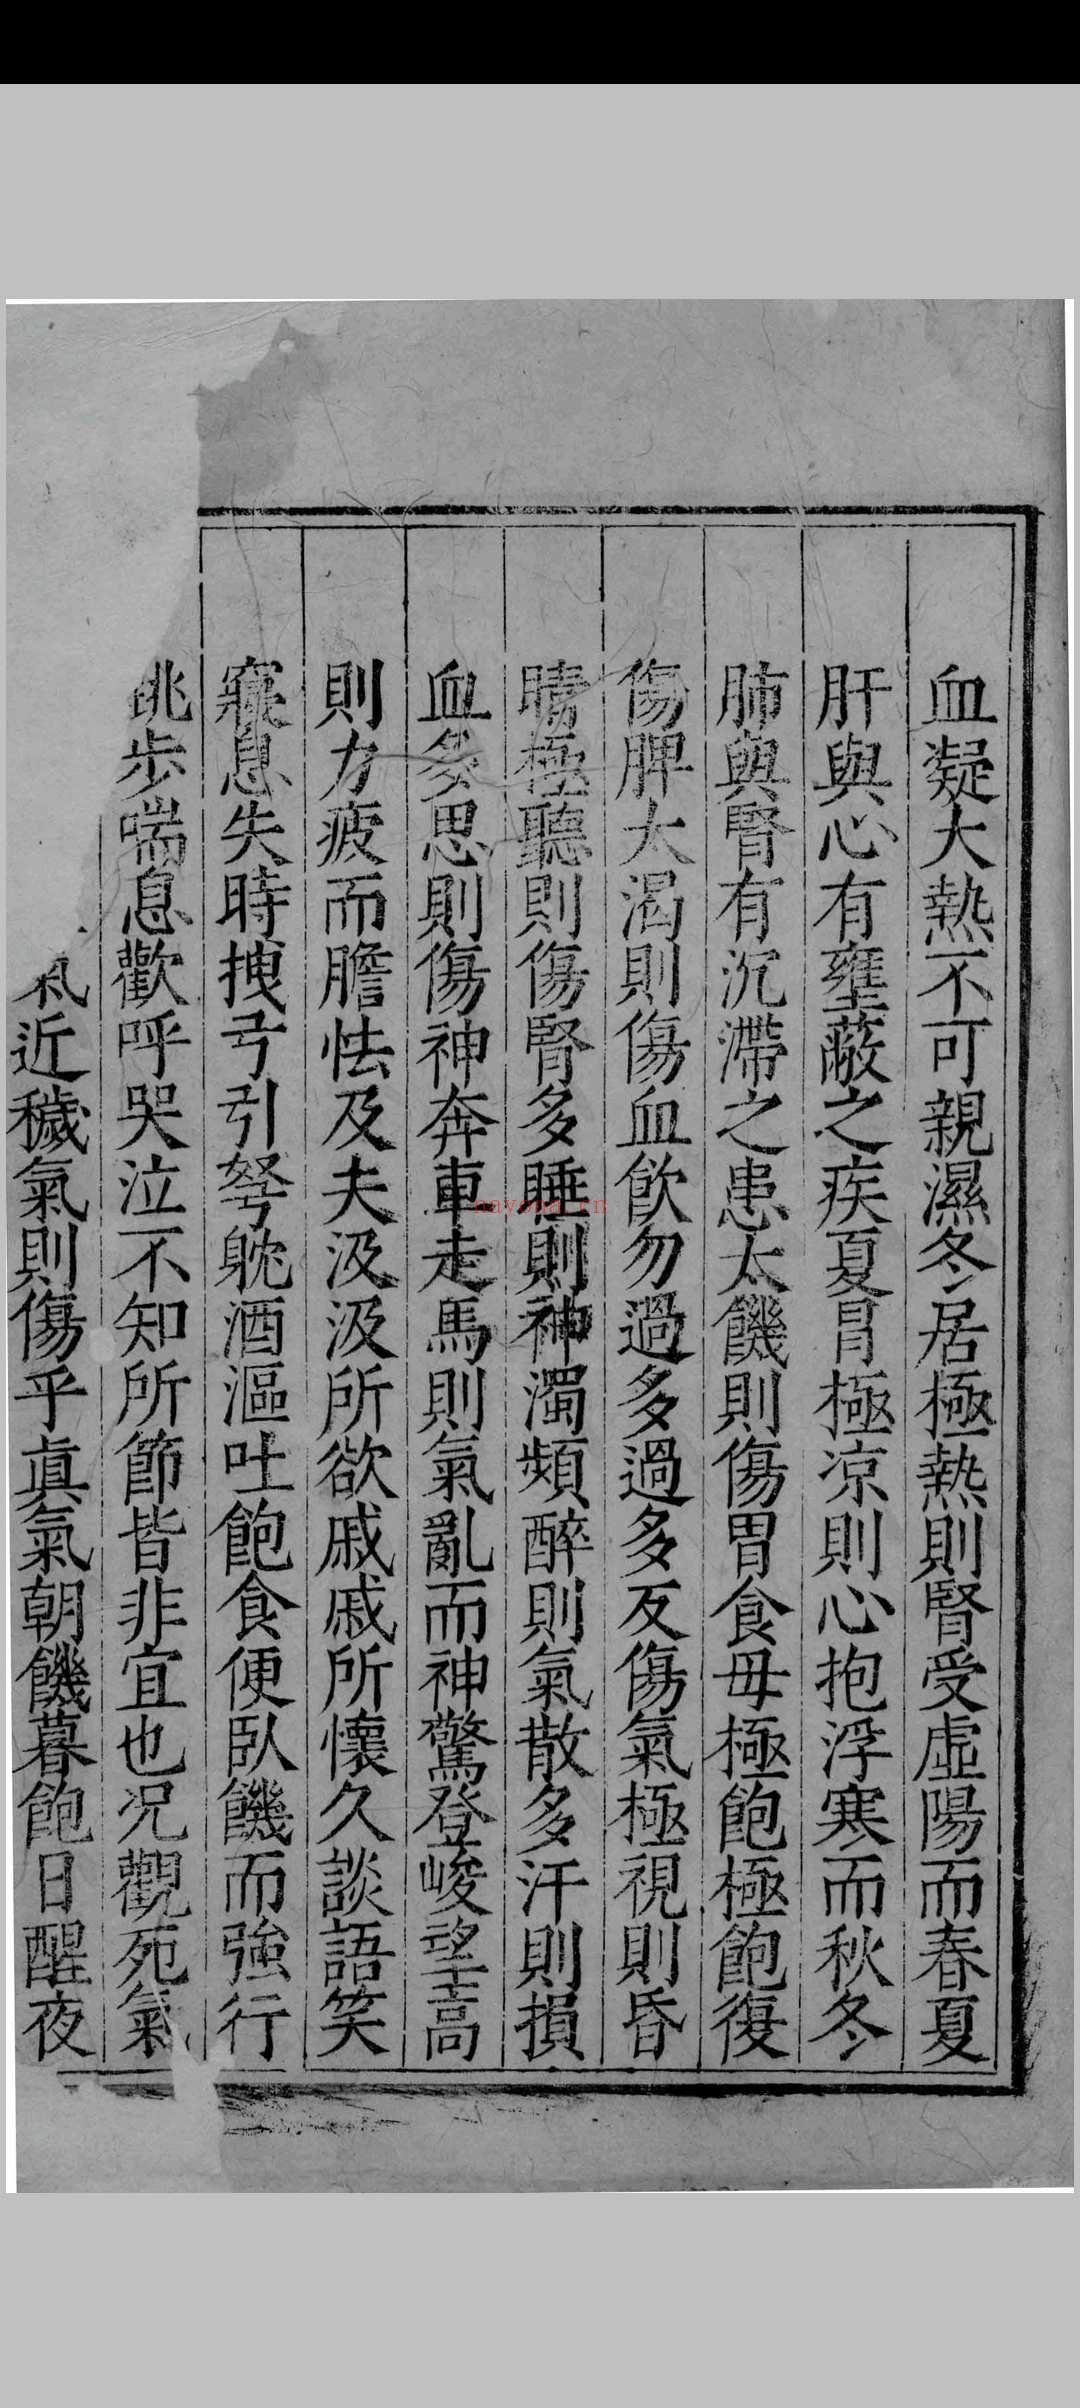 血凝大熱不可親濕冬居極熱則腎受虛陽而春夏
肝與心有壅蔽之疾夏冐極凉則心抱浮寒而秋冬
肺與腎有沉滯之患太饑則傷胃食毋極飽極飽復
傷脾太渴則傷血飲勿過多過多反傷氣極視則昏
睛極聽則傷腎多睡則神濁頻醉則氣散多汗則損
血多思則傷神奔車走馬則氣亂而神驚登峻望高
則力疲而膽怯及夫汲汲所欲戚戚所懷久談語笑
寢息失時拽弓引弩躭酒漚吐飽食便臥饑而強行
跳步喘息歡呼哭泣不知所節皆非宜也況觀死氣
氣近穢氣則傷乎眞氣朝饑暮飽日醒夜
nayona.cn